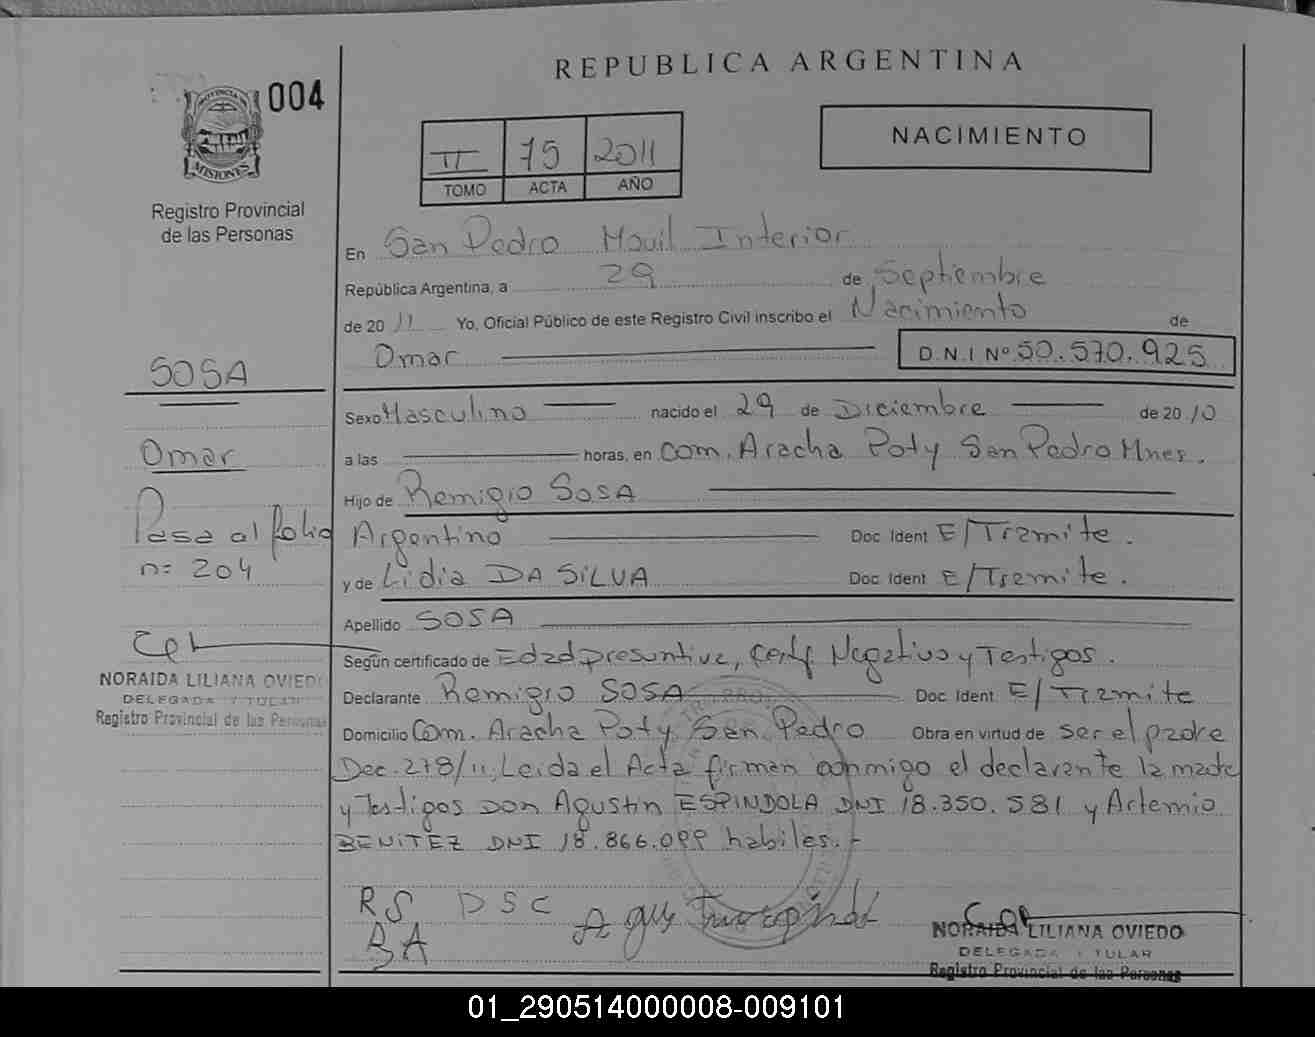 REPUBLICA ARGENTINA
004
PROVINCIA DE
MISIONES
Registro Provincial
de las Personas
II 75 2011
TOMO ACTA AÑO
NACIMIENTO
En San Pedro Movil Interior
República Argentina, a 29 de Septiembre
de 20 11 Yo, Oficial Público de este Registro Civil inscribo el Nacimiento de
Omar D.N.I Nº 50.570.925
SOSA
Omar
Pasa al folio
n= 204
NORAIDA LILIANA OVIEDO
DELEGADA TITULAR
Registro Provincial de las Personas
Sexo Masculino nacido el 29 de Diciembre de 20 10
a las horas, en Com. Aracha Poty San Pedro Mnes.
Hijo de Remigio SOSA
Argentino Doc Ident E/Tramite.
y de Lidia DA SILVA Doc Ident E/Tramite.
Apellido SOSA
Según certificado de Edad presuntiva, Certf Negativo y Testigos.
Declarante Remigio SOSA Doc Ident. E/Tramite
Domicilio Com. Aracha Poty San Pedro Obra en virtud de ser el padre
Dec. 278/11, Leida el Acta firman conmigo el declarante la madre
y Testigos Don Agustin ESPINDOLA DNI 18.350.581 y Artemio
BENITEZ DNI 18.866.099 habiles.-
RS DSC
BA
NORAIDA LILIANA OVIEDO
DELEGADA TITULAR
Registro Provincial de las Personas
01_290514000008-009101